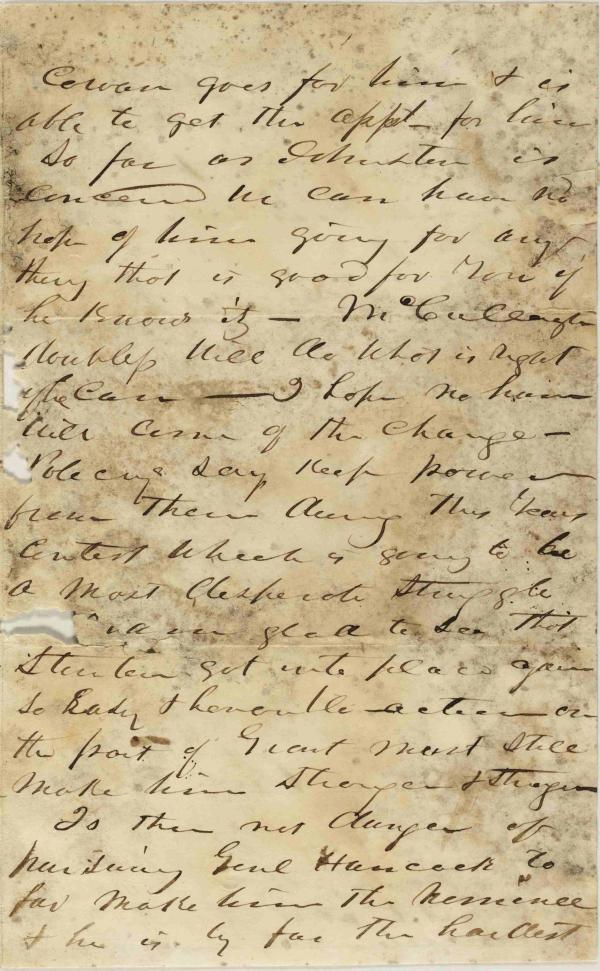 Cowan goes for him & is
able to get the appt for him
So far as Johnston is
concernd we can have no
hope of him going for any
thing that is good for you if
he knows it — McCullough
doubless will do what is right
if he can — I hope no harm
will come of the change —
Policy say keep power
from them during this years
contest which is going to be
a most desperate struggle
I am glad to see that
Stanton got into place again
so Easy & honorable action on
the part of Grant must still
make him stronger & stronger
Is ther not danger of
pursuing Genl Hancock to
far make him the Nominee
& he is by far the hardest